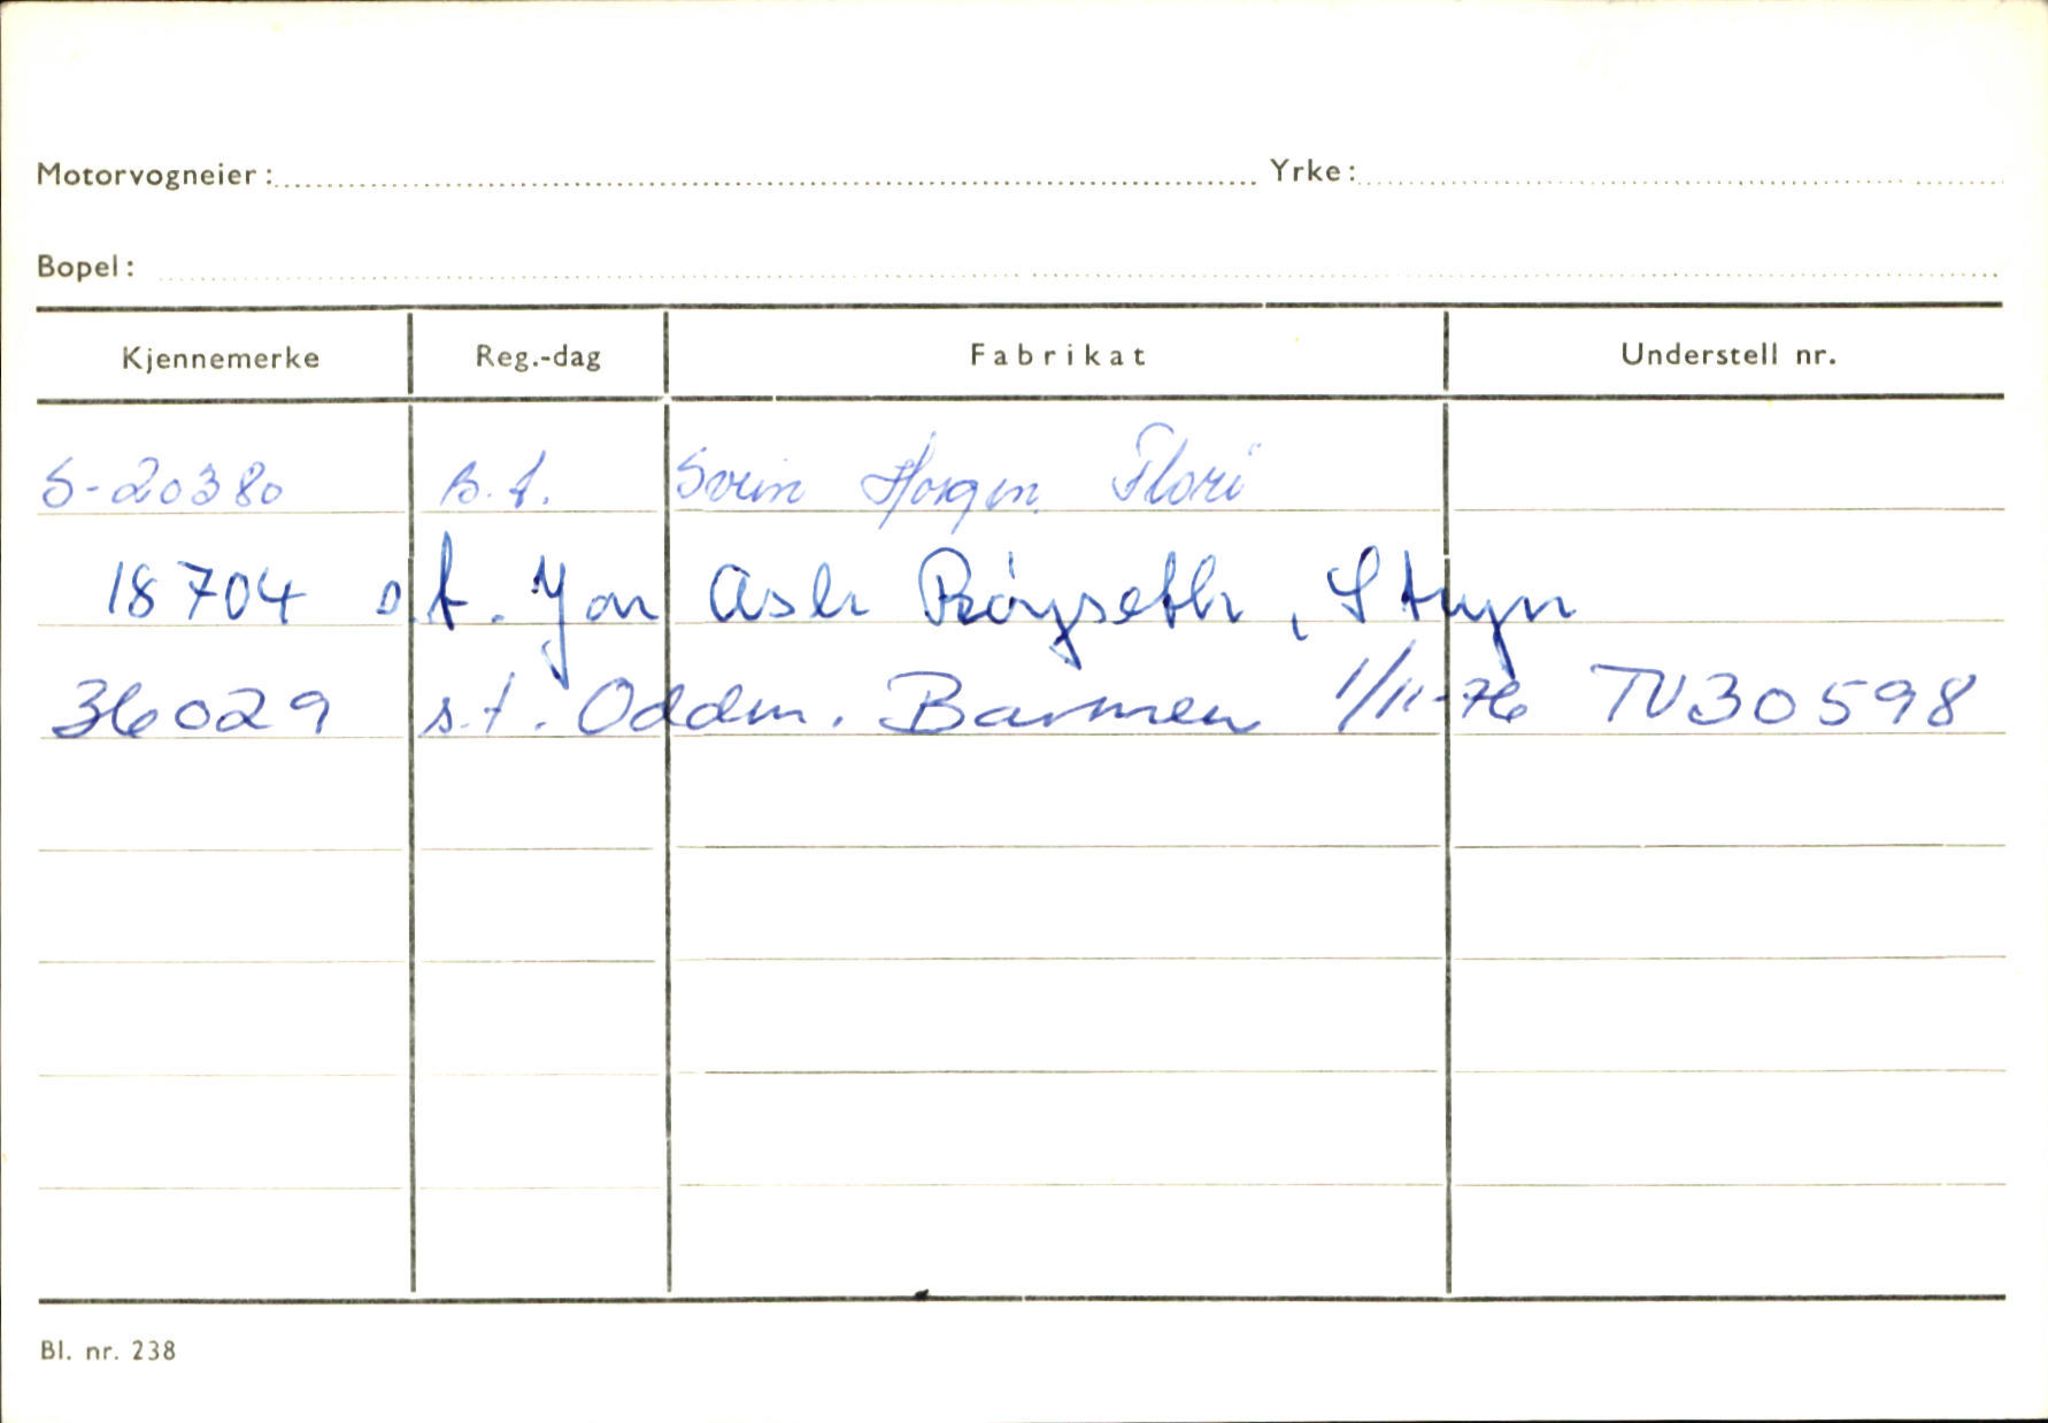 Motorvogneier: Yrke:
Bopel:
Kjennemerke Reg.-dag Fabrikat Understell nr.
S-20380 s.t. Svein Horgen Florö
18704 s.t. Jon Asle Röyseth, Stryn
36029 s.t. Oddm. Barmen 1/11-76 TV30598
Bl. nr. 238